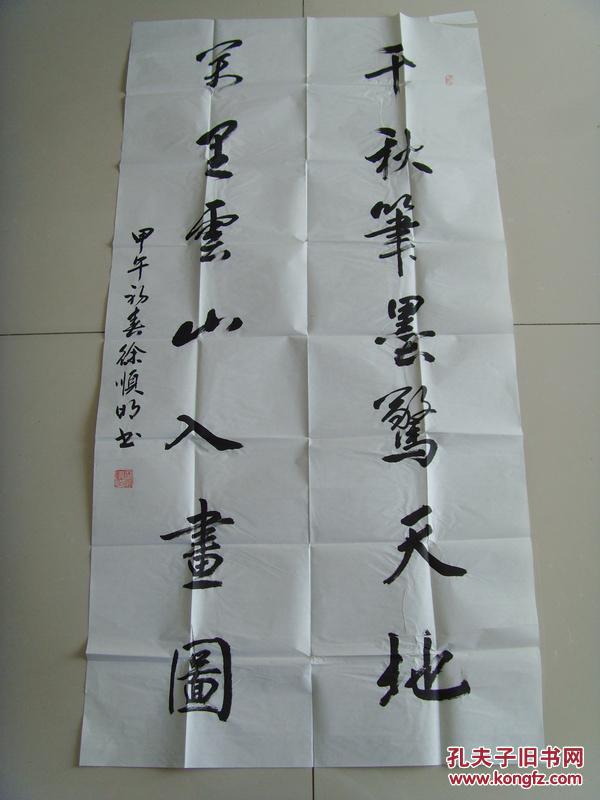 千秋筆墨驚天地
萬里雲山入畫圖
甲午初春徐順明書
孔夫子旧书网
www.kongfz.com